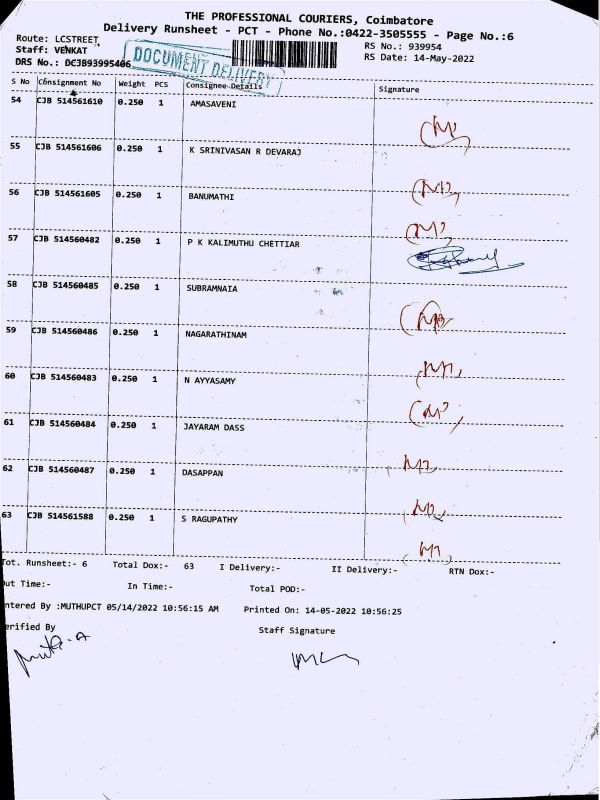 THE PROFESSIONAL COURIERS, Coimbatore
Delivery Runsheet - PCT - Phone No.:0422-3505555 - Page No.:6
Route: LCSTREET
Staff: VENKAT
DRS No.: DCJB93995406
DOCUMENT DELIVERY
RS No.: 939954
RS Date: 14-May-2022
S No Consignment No Weight PCS Consignee Details Signature
54 CJB 514561610 0.250 1 AMASAVENI
55 CJB 514561606 0.250 1 K SRINIVASAN R DEVARAJ
56 CJB 514561605 0.250 1 BANUMATHI
57 CJB 514560482 0.250 1 P K KALIMUTHU CHETTIAR
58 CJB 514560485 0.250 1 SUBRAMNAIA
59 CJB 514560486 0.250 1 NAGARATHINAM
60 CJB 514560483 0.250 1 N AYYASAMY
61 CJB 514560484 0.250 1 JAYARAM DASS
62 CJB 514560487 0.250 1 DASAPPAN
63 CJB 514561588 0.250 1 S RAGUPATHY
Tot. Runsheet:- 6 Total Dox:- 63 I Delivery:- II Delivery:- RTN Dox:-
Out Time:- In Time:- Total POD:-
ntered By :MUTHUPCT 05/14/2022 10:56:15 AM Printed On: 14-05-2022 10:56:25
erified By Staff Signature